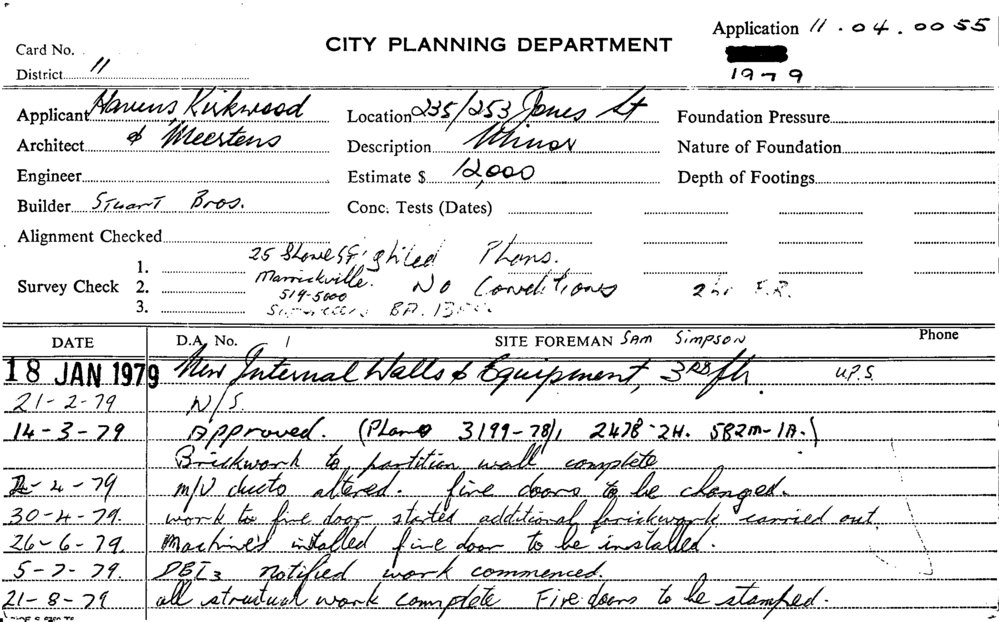 Application 11.04.0055
Card No.
CITY PLANNING DEPARTMENT
District 11
1979
Applicant Kirkwood
Location 235/253 Jones St
Foundation Pressure
Architect & Meertens
Description Minor
Nature of Foundation
Engineer
Estimate $ 12,000
Depth of Footings
Builder Stuart Bros.
Conc. Tests (Dates)
Alignment Checked
25 Plans.
1.
Marrickville.
Survey Check 2.
519-5000
No Conditions
2 hr F.R.
3.
BA.
DATE
D.A. No. 1
SITE FOREMAN SAM SIMPSON
Phone
18 JAN 1979 New Internal Walls & Equipment, 3RD flr. U.P.S.
21-2-79 N/S.
14-3-79 Approved. (Plans 3199-78), 2478-2H. 582M-1A.)
Brickwork to partition wall complete
-4-79 m/v ducts altered. fire doors to be changed.
30-4-79. work to fire door started additional brickwork carried out.
26-6-79. Machine's installed fire door to be installed.
5-7-79. notified work commenced.
21-8-79 all structual work complete Fire doors to be stamped.